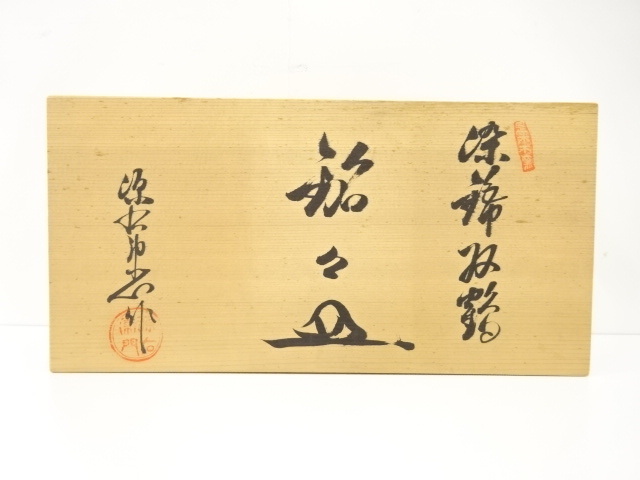 染錦双鶴
銘々皿
源右衛門作